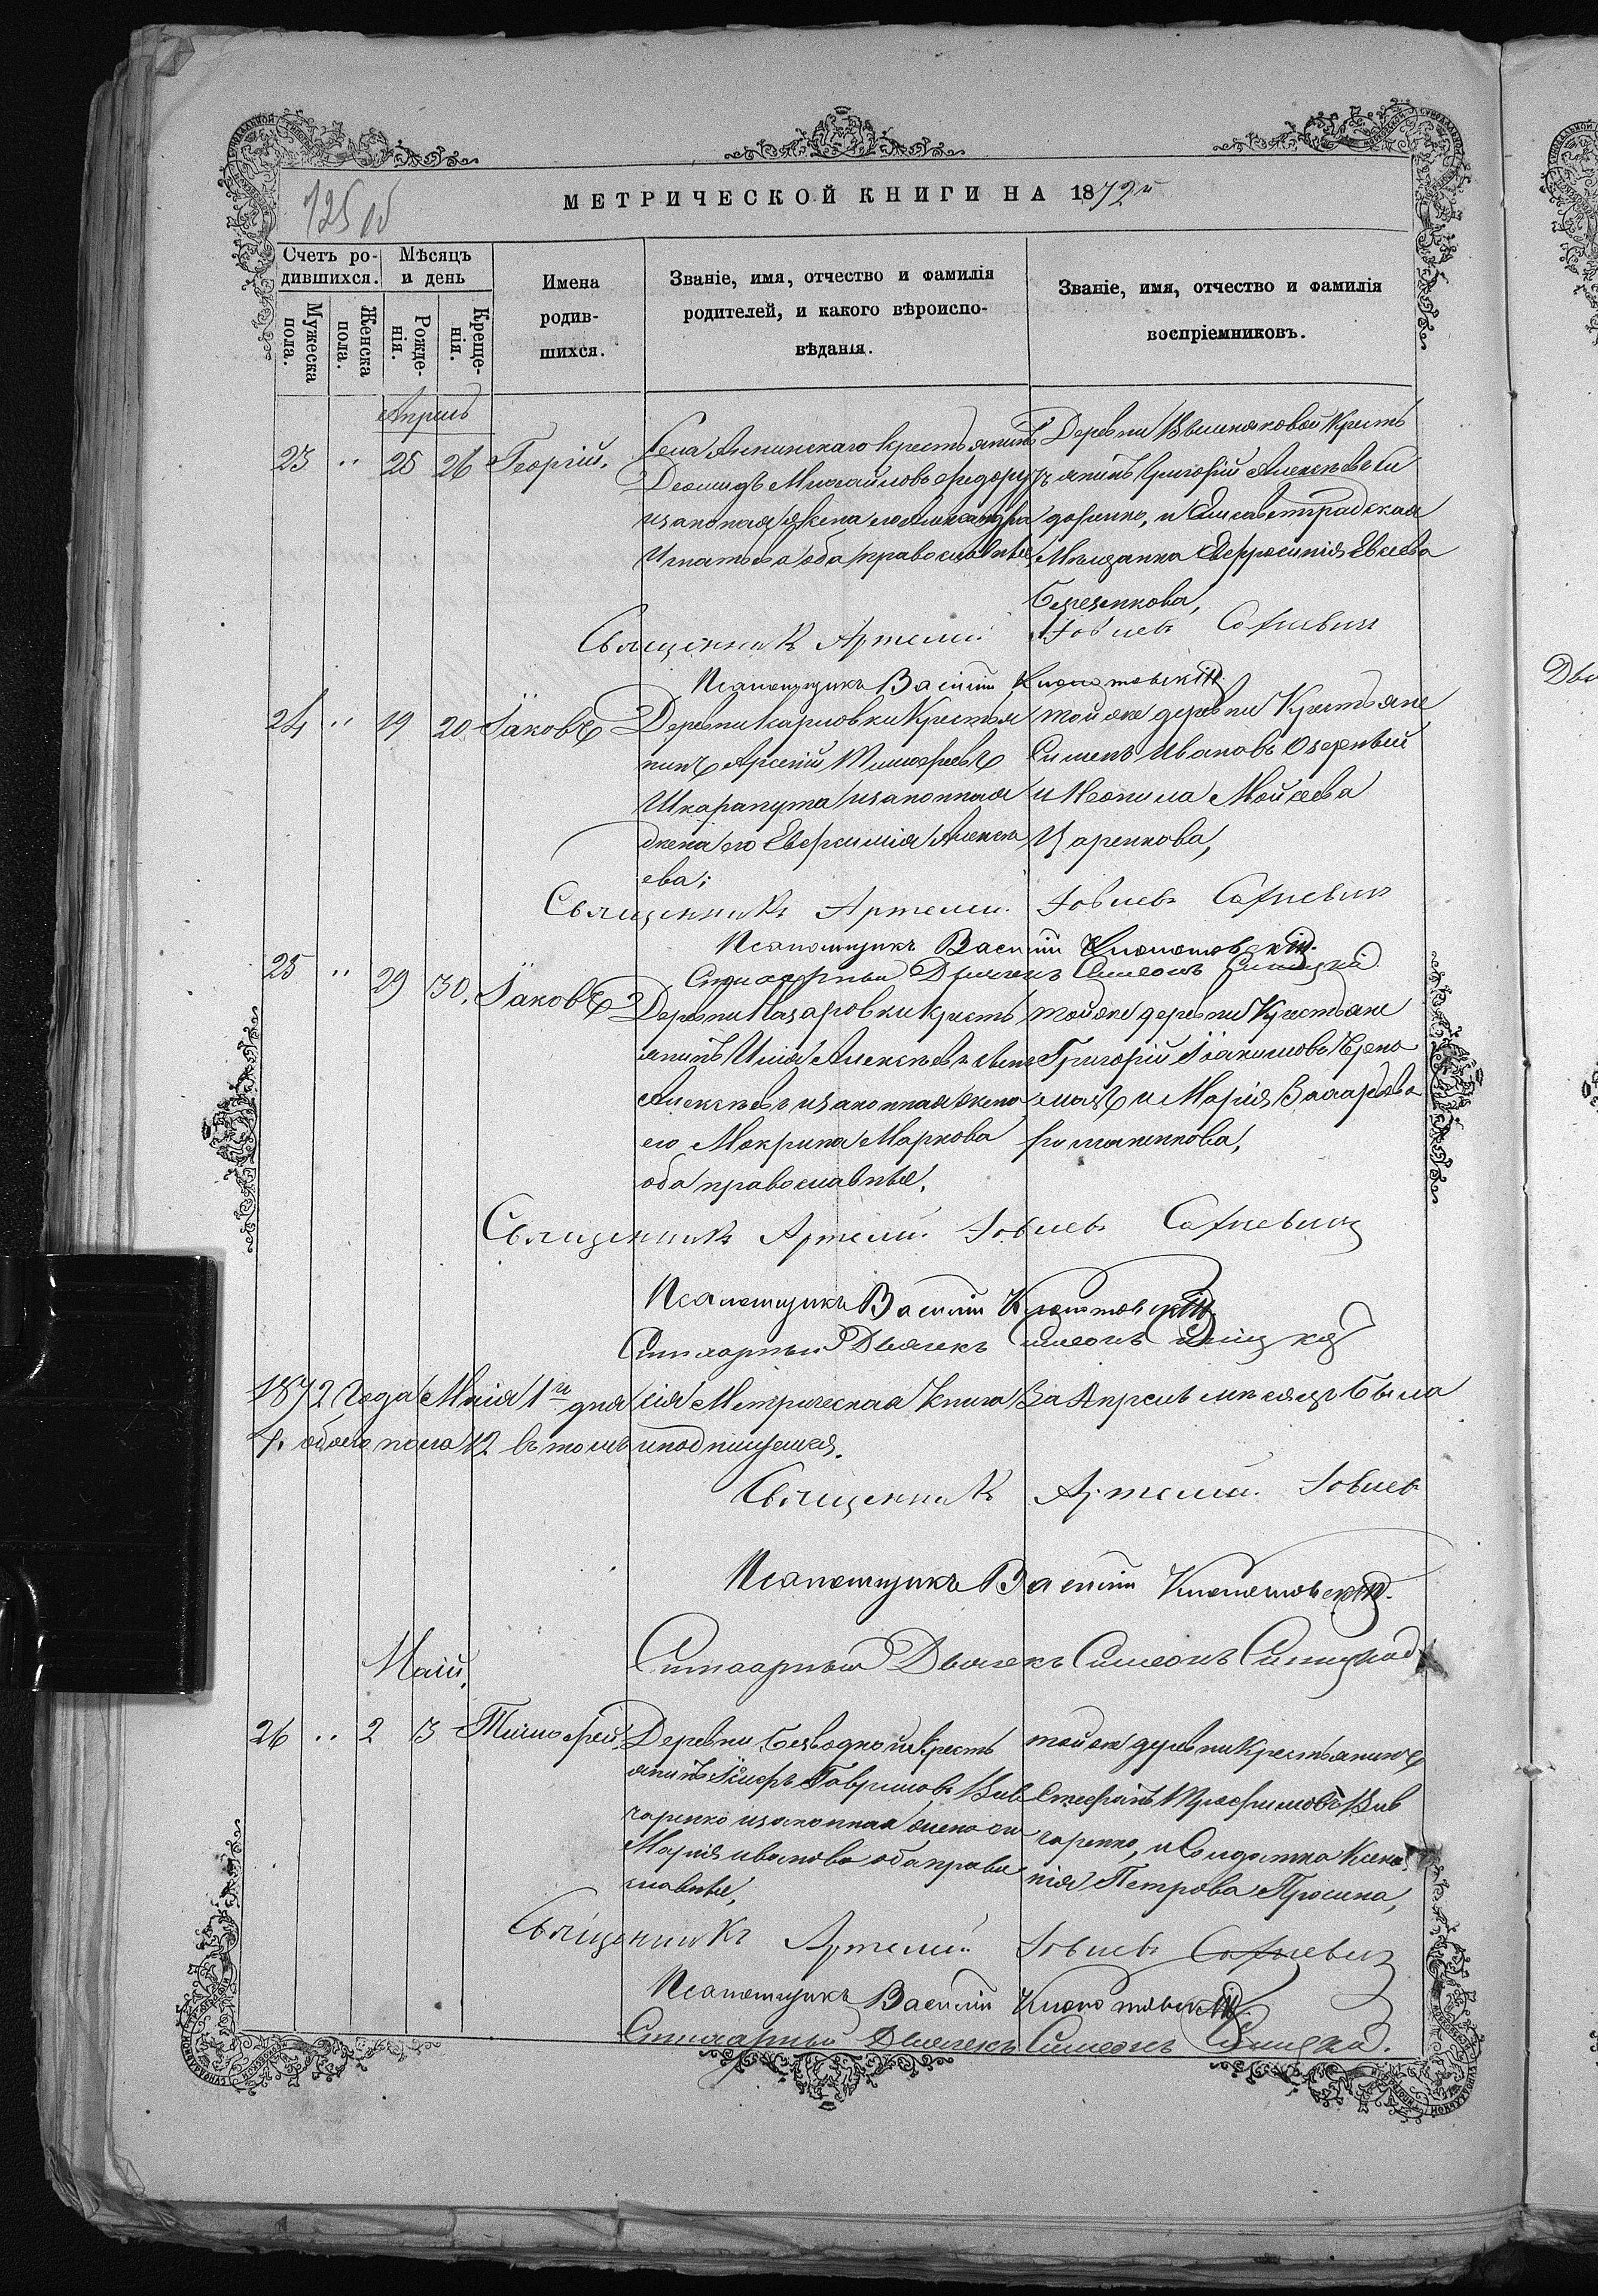 125 об
МЕТРИЧЕСКОЙ КНИГИ НА 1872й
Счетъ ро-
дившихся.
Мѣсяцъ
и день
Мужеска
пола.
Женска
пола.
Рожде-
нія.
Креще-
нія.
Имена
родив-
шихся.
Званіе, имя, отчество и фамилія
родителей, и какого вѣроиспо-
вѣданія.
Званіе, имя, отчество и фамилія
воспріемниковъ.
Апрель
23 " 25 26 Георгій.
Села Аннинскаго Крестьянинъ
Леонидъ Михайловъ
изаконная жена его Александра
Игнатьева оба православные,
Деревни Вишняковой Кресть
янинъ Григорій Алексѣевъ
и Елисаветградская
Мѣщанка Евфросинія Евсеева
Священникъ Артемій Іовлевъ Сафневичъ
Псаломщикъ Василій Клопотовскій
24 " 19 20 Іаковъ
Деревни Карловки Крестья
нинъ Арсеній Тимофеевъ
Шкарапута изаконная
жена его Евфимія Алексѣ
ева;
той же деревни Крестьяне
Симеонъ Ивановъ Озерный
и Неонила Моисеева
Царенкова,
Священникъ Артемій Іовлевъ Сафневичъ
Псаломщикъ Василій Клопотовскій.
Стихарный Дьячекъ Симеонъ Синицкій
25 " 29 30. Іаковъ
Деревни Назаровки Кресть
янинъ Илія Алексѣевъ сынъ
Алексѣевъ изаконная жена
его Макрина Маркова
оба православные,
той же деревни Крестьяне
Григорій Іоакимовъ Чрено
мазъ и Марія Захарьева
Священникъ Артемій Іовлевъ Сафневичъ
Псаломщикъ Василій Клопотовскій
Стихарный Дьячекъ Симеонъ Синицкій
1872 Года Маія 1го дня сія Метрическая Книга За Апрель мѣсяцъ Была
обоего пола 12 въ томъ иподпишемся.
Священникъ Артемій Іовлевъ
Псаломщикъ Василій Клопотовскій.
Стихарный Дьячекъ Симеонъ Синицкій
Маій,
26 " 2 3 Тимофей,
Деревни Безводной Кресть
янинъ Іосифъ Гавриловъ Вив
чаренко изаконная жена его
Марія иванова оба право
славные,
той же деревни Крестьянинъ
Стефанъ Трофимовъ Вив
чаренко, и Солдатка Ксе
нія Петрова Просина,
Священникъ Артемій Іовлевъ Сафневичъ
Псаломщикъ Василій Клопотовскій.
Стихарный Дьячекъ Симеонъ Синицкій.